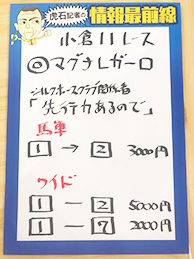 虎石記者の
情報最前線
小倉11レース
◎マグナレガーロ
シルクホースクラブ関係者
「先行力あるので」
馬単
1 → 2 3000円
ワイド
1 − 2 5000円
1 − 7 2000円